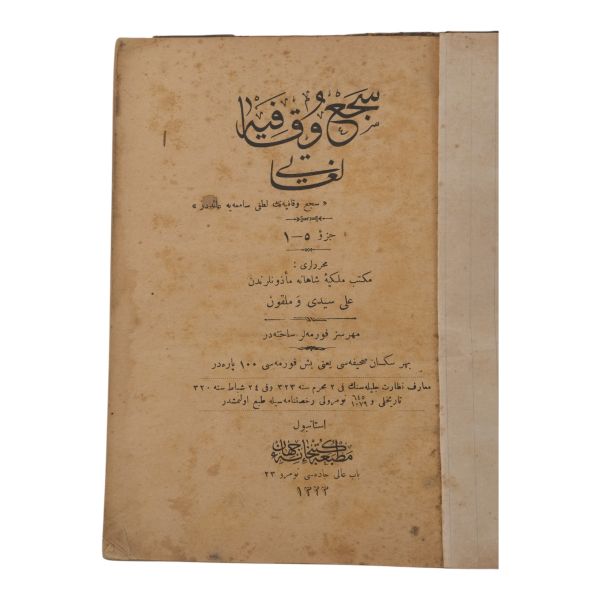 سجع و قافیه
لغاتی
« سجع و قافیه‌نك لطفی سامعه‌یه عائددر »
جزؤ ٥ – ١
محررلری :
مكتب ملكیۀ شاهانه مأذونلرندن
علی سیدی و ملقون
مهرسز فورمه‌لر ساخته‌در
بهر سكسان صحیفه‌سی یعنی بش فورمه‌سی ١٠٠ پاره‌در
معارف نظارت جلیله‌سنك فی ٢ محرم سنه ٣٢٣ و فی ٢٤ شباط سنه ٣٢٠
تاریخلی و ٦٤٥ ١٠٧٩ نومرولی رخصتنامه‌سیله طبع اولنمشدر
استانبول
مطبعۀ كتبخانۀ جهان
باب عالی جاده‌سی نومرو ٢٣
١٣٢٣